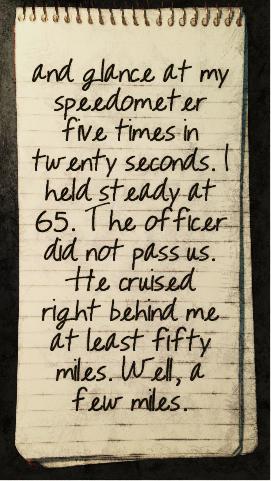 and glance at my
speedometer
five times in
twenty seconds. I
held steady at
65. The officer
did not pass us.
He cruised
right behind me
at least fifty
miles. Well, a
few miles.